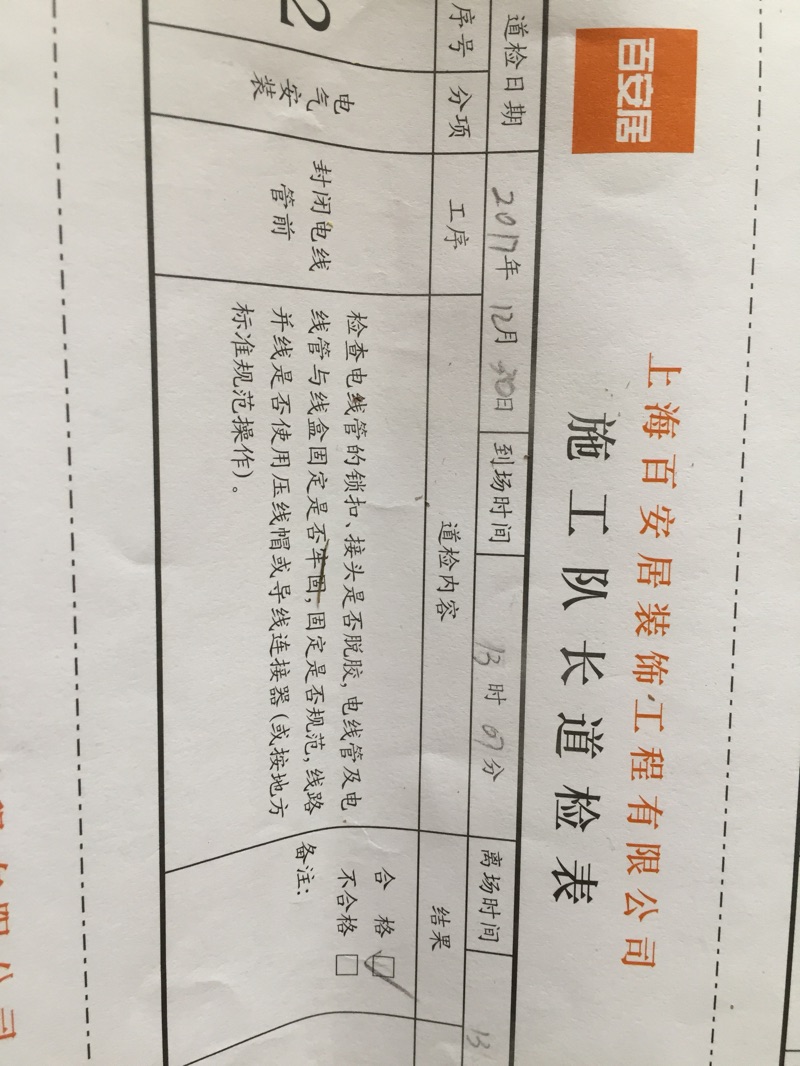 百安居
上海百安居装饰工程有限公司
施工队长道检表
道检日期 2017年 12月 30日 到场时间 13时 07分 离场时间 13
序号 分项 工序 道检内容 结果
2
电气安装
封闭电线
管前
检查电线管的锁扣、接头是否脱胶,电线管及电
线管与线盒固定是否牢固,固定是否规范,线路
并线是否使用压线帽或导线连接器(或按地方
标准规范操作)。
合 格 ☑
不合格 □
备注: